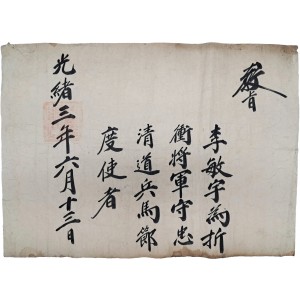 敎旨
李敏宇為折
衝將軍守忠
清道兵馬節
度使者
光緒三年六月十三日